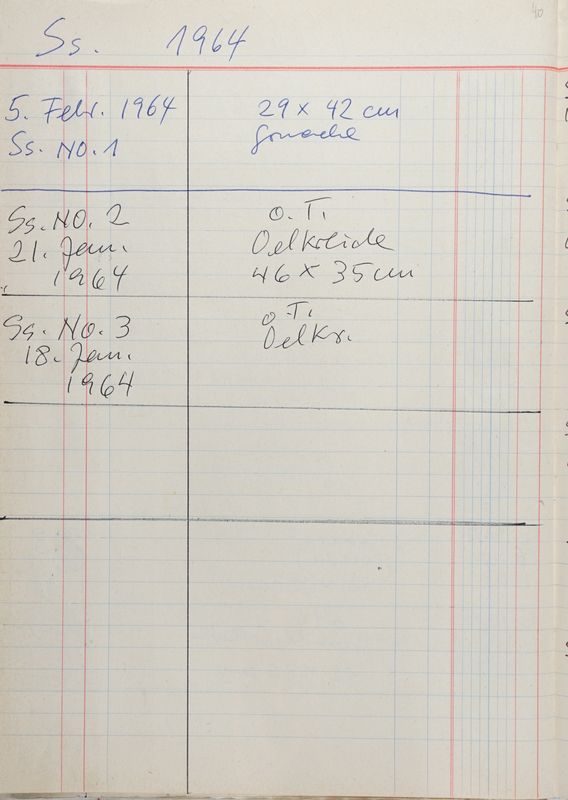 40
Ss. 1964
5. Febr. 1964
Ss. NO. 1
29 x 42 cm
Gouache
Ss. NO. 2
21. Jan.
1964
O. T.
Oelkreide
46 x 35 cm
Ss. No. 3
18. Jan.
1964
O. T.
Oelkr.